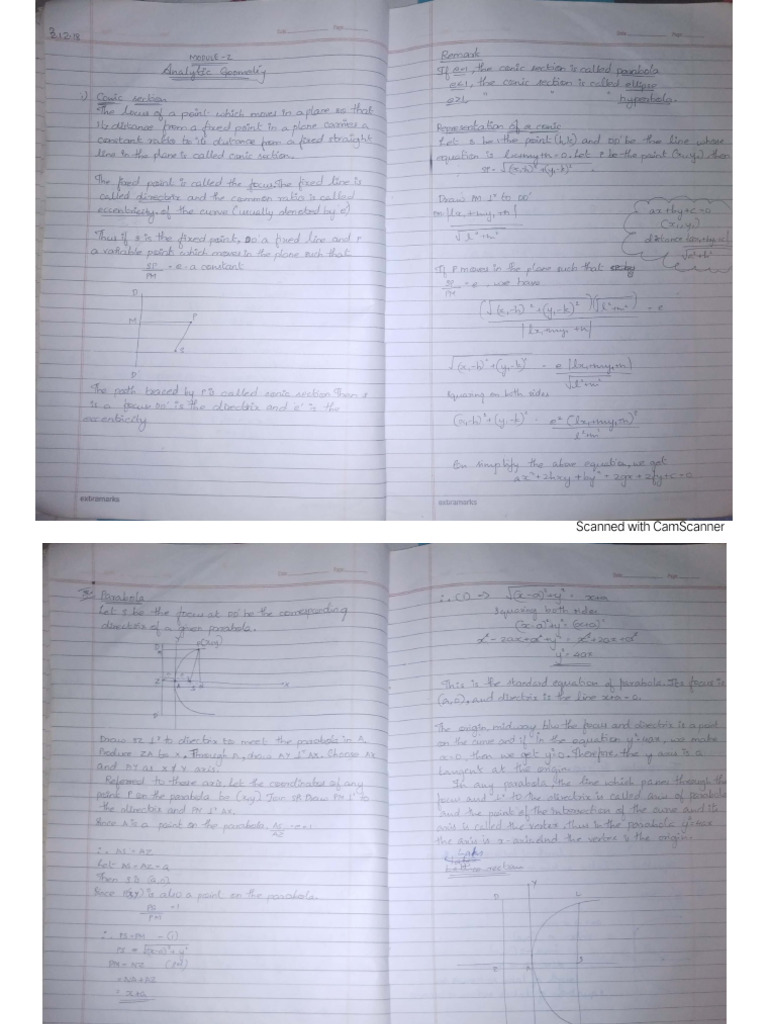 3.12.18
Date Page
MODULE-2
Analytic Geometry
1) Conic section
The locus of a point which moves in a plane so that
its distance from a fixed point in a plane carries a
constant ratio to its distance from a fixed straight
line in the plane is called conic section.
The fixed point is called the focus. The fixed line is
called directrix and the common ratio is called
eccentricity of the curve (usually denoted by e)
Thus if s is the fixed point, DD' a fixed line and P
a variable point which moves in the plane such that
SP/PM = e = a constant
D
M P
S
D'
The path traced by P is called conic section. Then s
is a focus DD' is the directrix and e' is the
eccentricity.
extramarks
Date Page
Remark
If e=1, the conic section is called parabola
e<1, the conic section is called ellipse
e>1 " " " hyperbola.
Representation of a conic
Let s be the point (h,k) and DD' be the line whose
equation is lx+my+n=0. Let P be the point (x₁,y₁) then
SP = √(x₁-h)²+(y₁-k)²
Draw PM ⊥r to DD'
|lx₁+my₁+n|
√l²+m²
ax+by+c=0
(x₁,y₁)
distance
If P moves in the plane such that
SP/PM = e, we have
(√(x₁-h)²+(y₁-k)²)(√l²+m²) = e
|lx₁+my₁+n|
√(x₁-h)²+(y₁-k)² = e|lx₁+my₁+n|
√l²+m²
Squaring on both sides
(x₁-h)²+(y₁-k)² = e²(lx₁+my₁+n)²
l²+m²
On simplify the above equation, we get
ax²+2hxy+by²+2gx+2fy+c=0
extramarks
Scanned with CamScanner
Date Page
Parabola
Let s be the focus at DD' be the corresponding
directrix of a given parabola.
Y P(x,y)
Z A S X
Draw SZ ⊥r to directrix to meet the parabola in A
Produce ZA to X. Through A, draw AY ⊥r AX. Choose AX
and AY as x & y axis.
Referred to these axis. Let the coordinates of any
point P on the parabola be (x,y) Join SP. Draw PM ⊥r to
the directrix and PN ⊥r AX.
Since A is a point on the parabola, AS/AZ = e = 1
∴ AS = AZ
Let AS = AZ = a
Then S is (a,0)
Since P(x,y) is also a point on the parabola.
PS/PM = 1
∴ PS = PM - (1)
PS = √(x-a)²+y²
PM = NZ
= NA+AZ
= x+a
Date Page
∴ (1) ⇒ √(x-a)²+y² = x+a
Squaring both sides
(x-a)²+y² = (x+a)²
x²-2ax+a²+y² = x²+2ax+a²
y²=4ax
This is the standard equation of parabola. Its focus is
(a,0), and directrix is the line x+a=0.
The origin, midway b/w the focus and directrix is a point
on the curve and if in the equation y²=4ax, we make
x=0, then we get y²=0. Therefore, the y axis is a
tangent at the origin.
In any parabola, the line which passes through the
focus and ⊥r to the directrix is called axis of parabola
and the point of the intersection of the curve and its
axis is called the vertex, thus in the parabola y²=4ax
the axis is x-axis and the vertex is the origin.
D Y L
Z A S